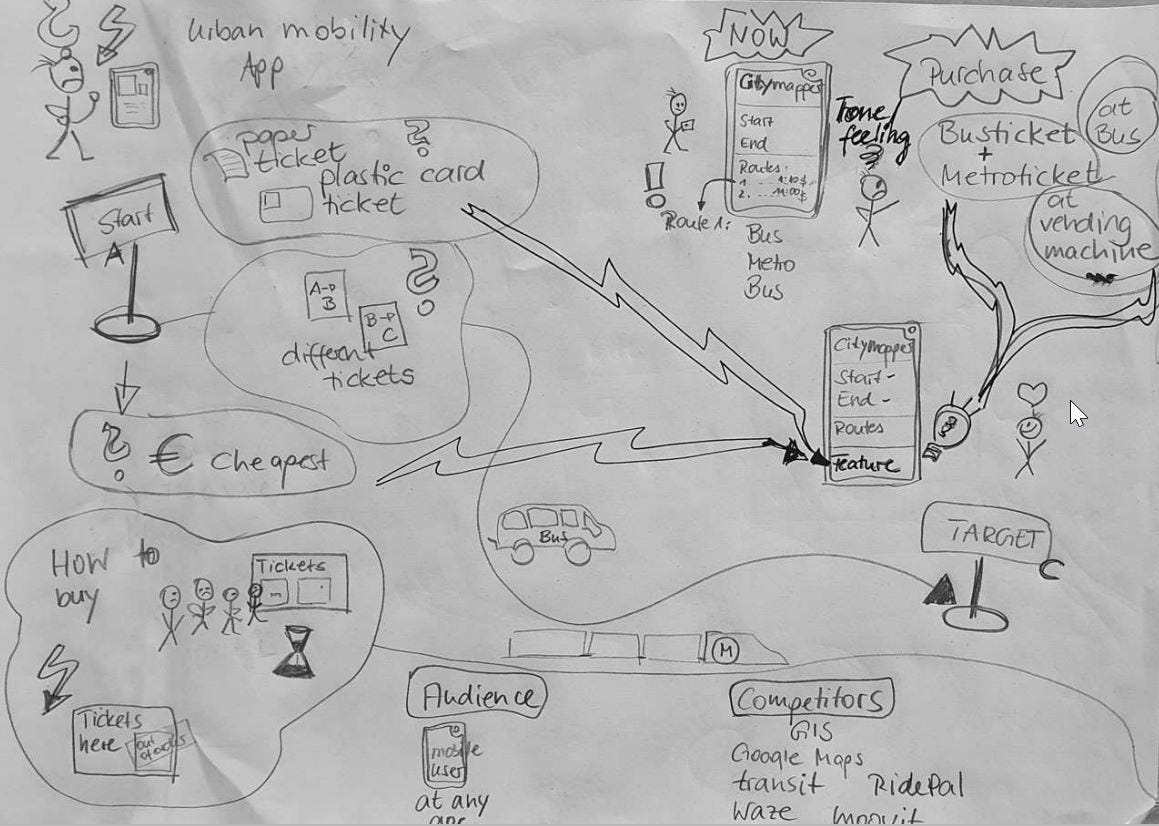 Urban mobility
App
paper
ticket
plastic card
ticket
Start
A
A→
B
B→
C
different
tickets
€ cheapest
How to
buy
Tickets
Tickets
here
out
of order
NOW
Citymapper
Start
End
Routes:
1.
2.
Route 1:
Bus
Metro
Bus
feeling
Purchase
Busticket
+
Metroticket
at
Bus
at
vending
machine
Citymapper
Start -
End -
Routes
feature
Bus
M
TARGET
C
Audience
mobile
user
at any
age
Competitors
GIS
Google Maps
transit RidePal
Waze moovit